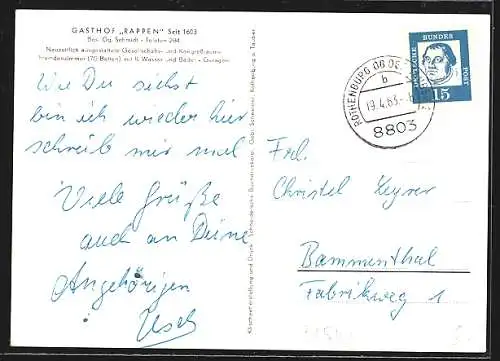 GASTHOF „RAPPEN" Seit 1603
Bes. Gg. Schmidt - Telefon 294
Neuzeitlich ausgestattete Gesellschafts- und Kongreßräume
Fremdenzimmer (70 Betten) mit fl. Wasser und Bäder - Garagen
Wie Du siehst
bin ich wieder hier
schreib mir mal
Viele Grüße
auch an Deine
Angehörigen
DEUTSCHE
BUNDES
POST
15
ROTHENBURG OB DE
b
19.4.63.
8803
Frl.
Christel
Bammenthal
Fabrikweg 1